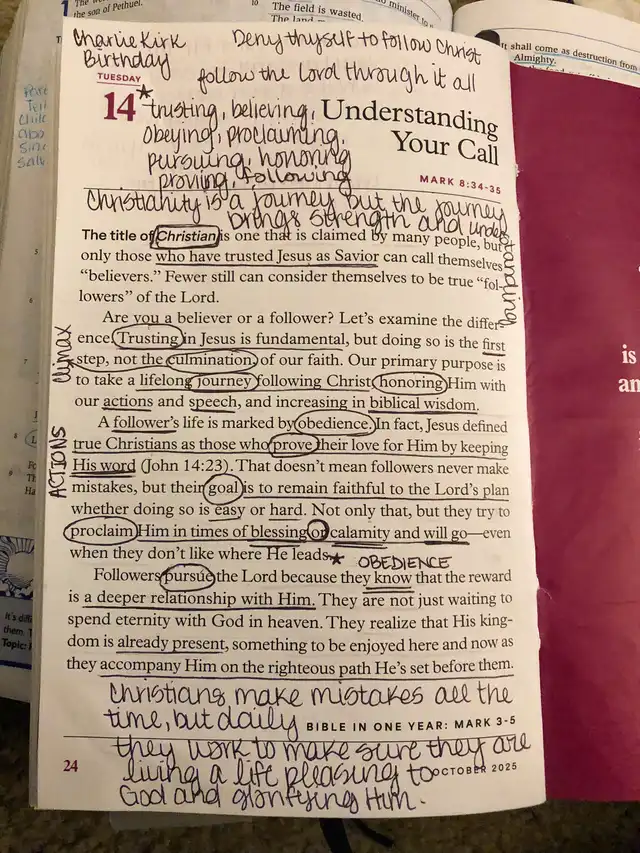 the son of Pethuel.
The field is wasted,
The land
minister to
It shall come as destruction from
Almighty.
Charlie Kirk
Birthday
Deny thyself to follow Christ
follow the Lord through it all
TUESDAY
14
* trusting, believing,
obeying, proclaiming,
pursuing, honoring
proving, following
Understanding
Your Call
MARK 8:34-35
Christianity is a journey but the journey
brings strength and understanding
The title of Christian is one that is claimed by many people, but
only those who have trusted Jesus as Savior can call themselves
“believers.” Fewer still can consider themselves to be true “fol-
lowers” of the Lord.
Are you a believer or a follower? Let’s examine the differ-
ence. Trusting in Jesus is fundamental, but doing so is the first
step, not the culmination of our faith. Our primary purpose is
to take a lifelong journey following Christ, honoring Him with
our actions and speech, and increasing in biblical wisdom.
climax
A follower’s life is marked by obedience. In fact, Jesus defined
true Christians as those who prove their love for Him by keeping
His word (John 14:23). That doesn’t mean followers never make
mistakes, but their goal is to remain faithful to the Lord’s plan
whether doing so is easy or hard. Not only that, but they try to
proclaim Him in times of blessing or calamity and will go—even
when they don’t like where He leads.
ACTIONS
* OBEDIENCE
Followers pursue the Lord because they know that the reward
is a deeper relationship with Him. They are not just waiting to
spend eternity with God in heaven. They realize that His king-
dom is already present, something to be enjoyed here and now as
they accompany Him on the righteous path He’s set before them.
Christians make mistakes all the
time, but daily
BIBLE IN ONE YEAR: MARK 3-5
they work to make sure they are
living a life pleasing to
God and glorifying Him.
24
OCTOBER 2025
It's diff
them. T
Topic:
is
an